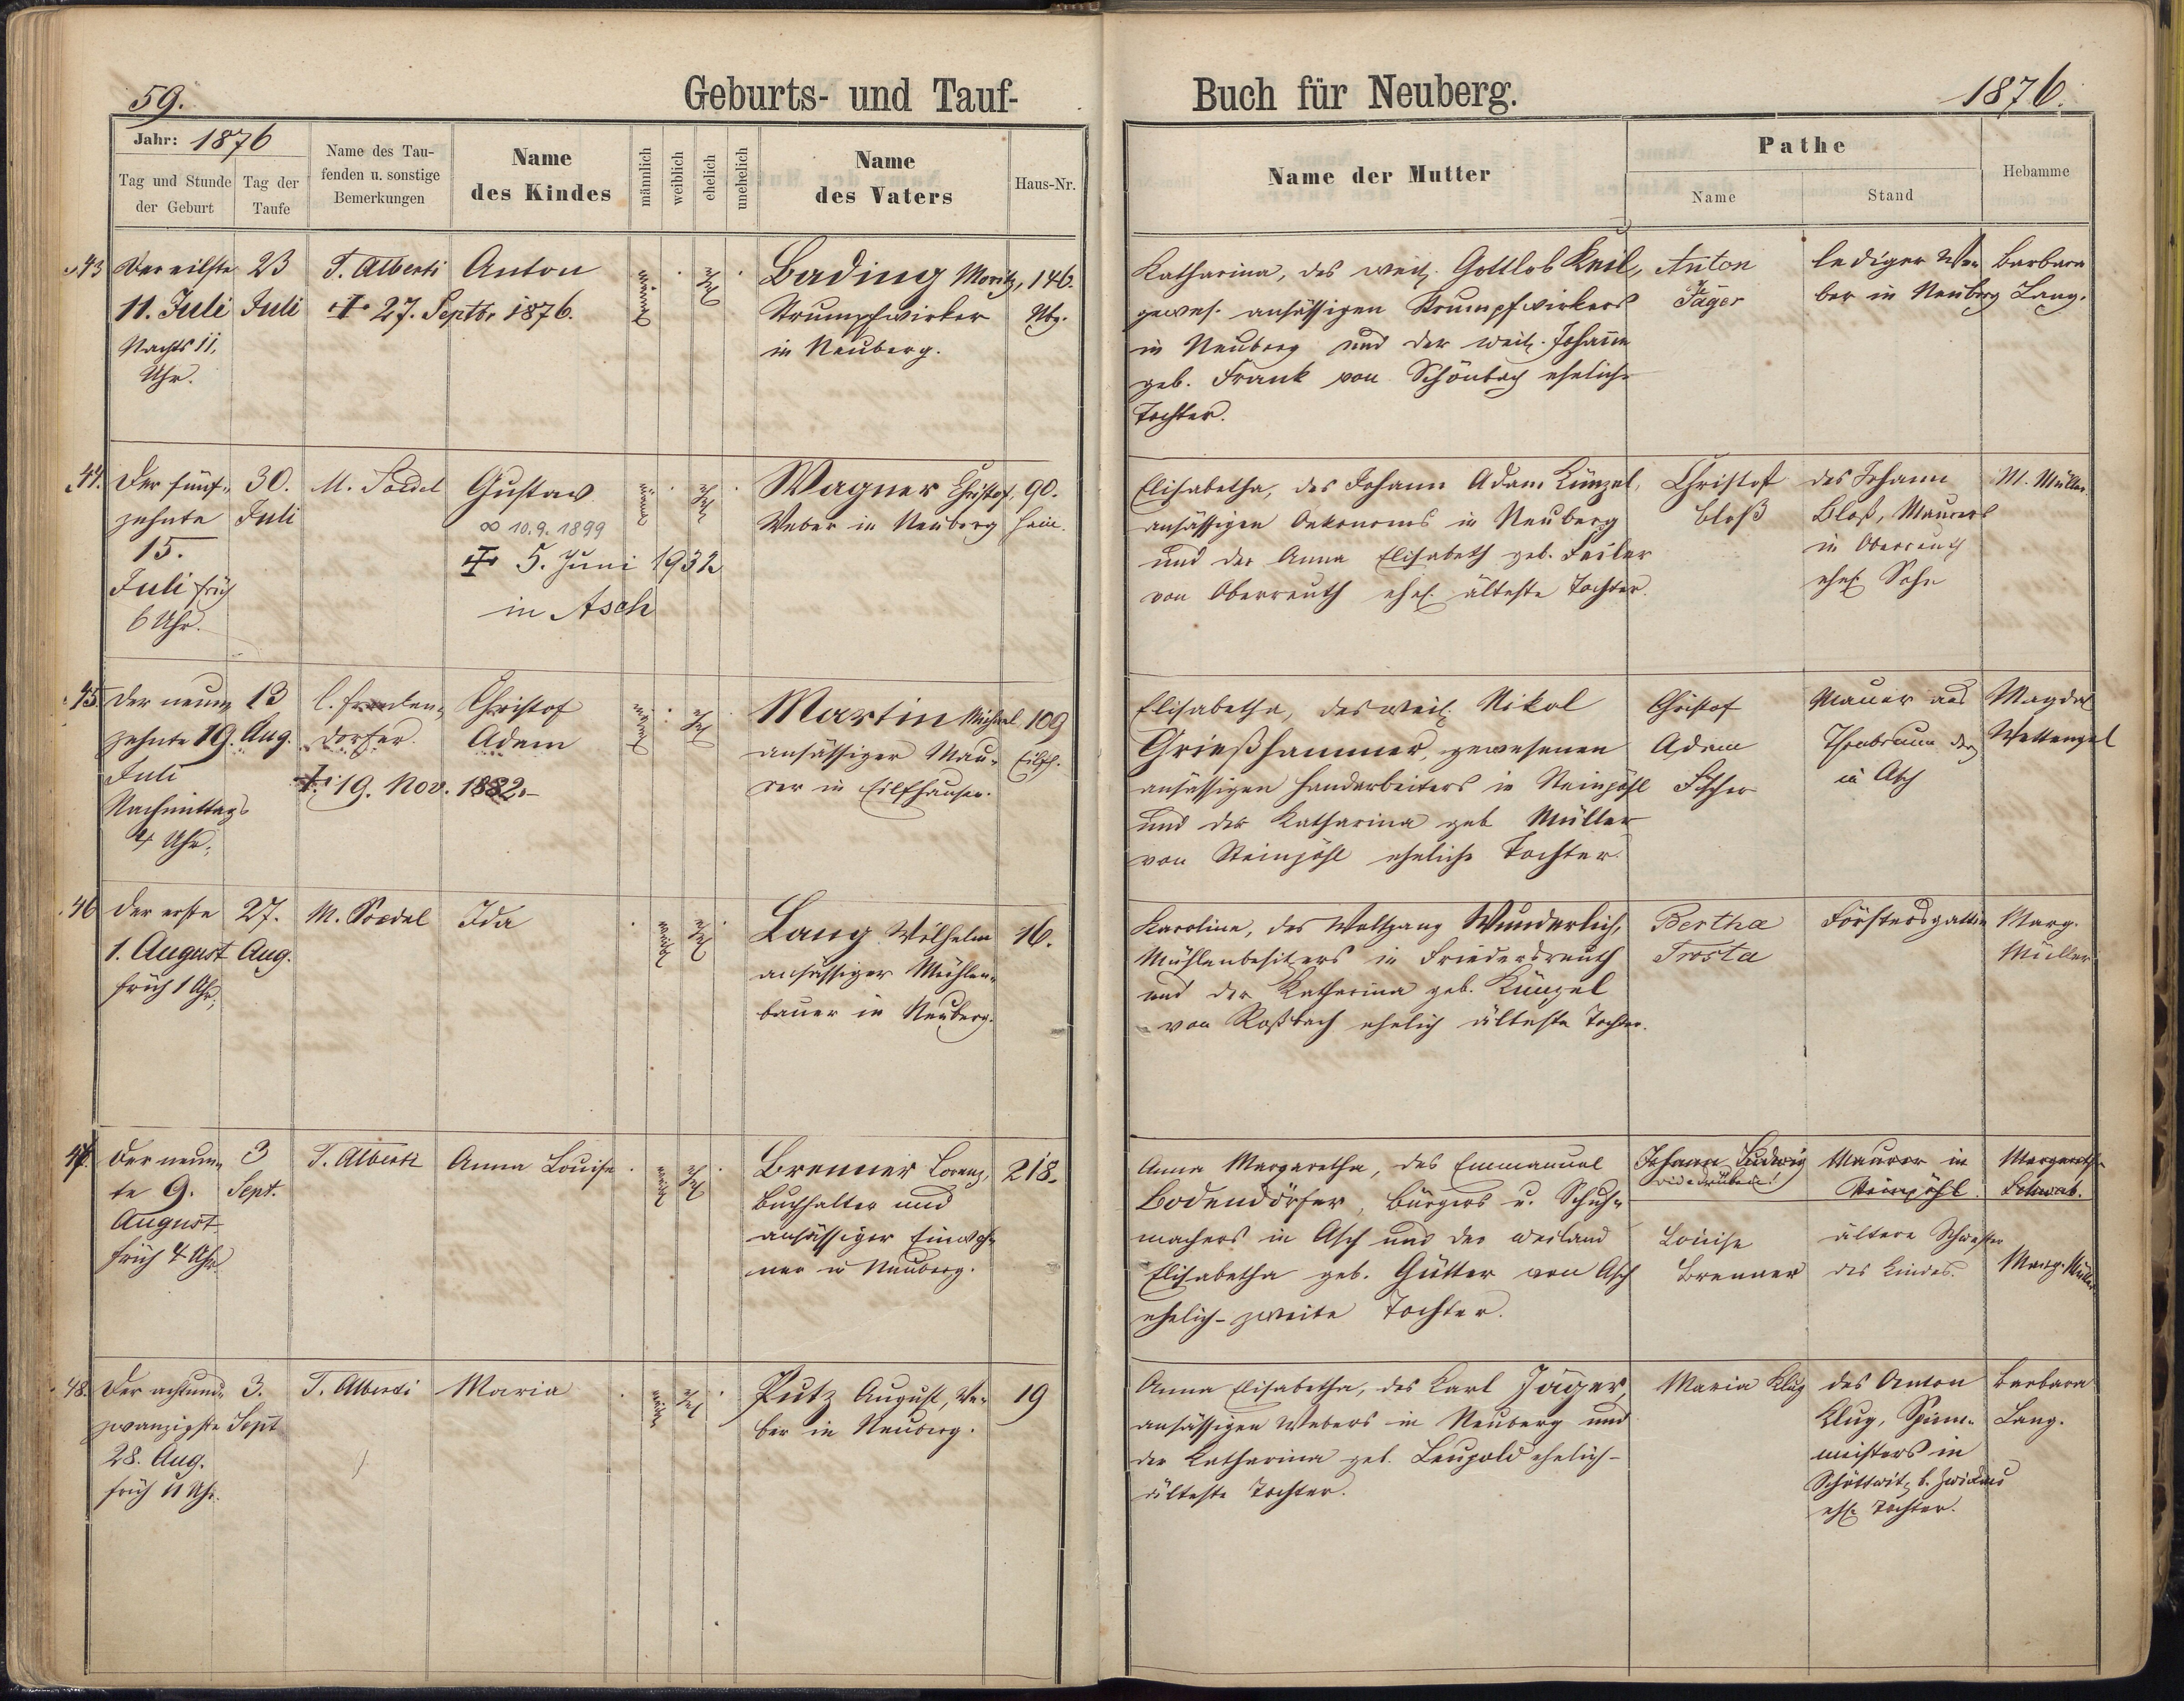 59.
Geburts- und Tauf-
Buch für Neuberg.
1876.
Jahr: 1876
Tag und Stunde
der Geburt
Tag der
Taufe
Name des Tau-
fenden u. sonstige
Bemerkungen
Name
des Kindes
männlich
weiblich
ehelich
unehelich
Name
des Vaters
Haus-Nr.
Name der Mutter
Pathe
Name
Stand
Hebamme
43
Der eilfte
11. Juli
Nachts 11,
Uhr.
23
Juli
T. Alberti
Anton
✝ 27. Septbr 1876.
männl.
ehel.
Bading Moritz,
Strumpfwirker
in Neuberg.
146.
Nbg.
Katharina, des weil. Gottlob Keil,
gewes. ansässigen Strumpfwirkers
in Neuberg und der weil. Johanne
geb. Frank von Schönbach eheliche
Tochter.
Anton
Jäger
lediger We-
ber in Neuberg
Barbara
Lang.
44.
Der fünf-
zehnte
15.
Juli früh
6 Uhr.
30.
Juli
Gustav
∞ 10.9.1899
✝ 5. Juni 1932
in Asch
männl.
ehel.
Wagner Christof,
Weber in Neuberg
90.
Hain.
Elisabetha, des Johann Adam Künzel,
ansässigen Oekonoms in Neuberg
und der Anna Elisabeth geb. Feiler
von Oberreuth ehel. älteste Tochter.
Christof
Bloß
des Johann
Bloß, Maurers
in Oberreuth
ehel. Sohn
M. Müller.
45.
Der neun-
zehnte 19.
Juli
Nachmittags
4 Uhr.
13
Aug.
Christof
Adam
✝ 19. Nov. 1882.
männl.
ehel.
Martin Michael
ansässiger Mau-
rer in Eilfhausen.
109
Eilfh.
Elisabetha, des weil. Nikol
Grießhammer, gewesenen
ansässigen Handarbeiters in Steinpöhl
und der Katharina geb Müller
von Steinpöhl eheliche Tochter.
Christof
Adam
Maurer aus
in Asch
Magdal
Wettengel
46
Der erste
1. August
früh 1 Uhr.
27.
Aug.
Ida
weibl.
ehel.
Lang Wilhelm
ansässiger Mühlen-
bauer in Neuberg.
16.
Karoline, des Wolfgang Wunderlich,
Mühlenbesitzers in Friedersreuth
und der Katharina geb. Künzel
von Roßbach ehelich älteste Tochter.
Bertha
Trosta
Förstersgattin
Marg.
Müller
47.
Der neun-
te 9.
August
früh 4 Uhr.
3
Sept.
T. Alberti
Anna Louise
weibl.
ehel.
Brenner Lorenz,
Buchhalter und
ansässiger Einwoh-
ner in Neuberg.
218.
Anna Margaretha, des Emmanuel
Bodendörfer, Bürgers u. Schuh-
machers in Asch und der weiland
Elisabetha geb. Gütter von Asch
ehelich-zweite Tochter.
Johann Ludwig
Maurer in
Steinpöhl.
Margareth.
Schwab.
Louise
Brenner
ältere Schwester
des Kindes.
Marg. Müller
48.
Der achtund-
zwanzigste
28. Aug.
früh 11 Uhr.
3.
Sept
T. Alberti
Maria
weibl.
ehel.
Putz August, We-
ber in Neuberg.
19
Anna Elisabetha, des Karl Jäger,
ansässigen Webers in Neuberg und
der Katharina geb. Leupold ehelich-
älteste Tochter.
Maria Klug
des Anton
Klug, Spinn-
meisters in
b. Zwickau
ehl. Tochter.
Barbara
Lang.